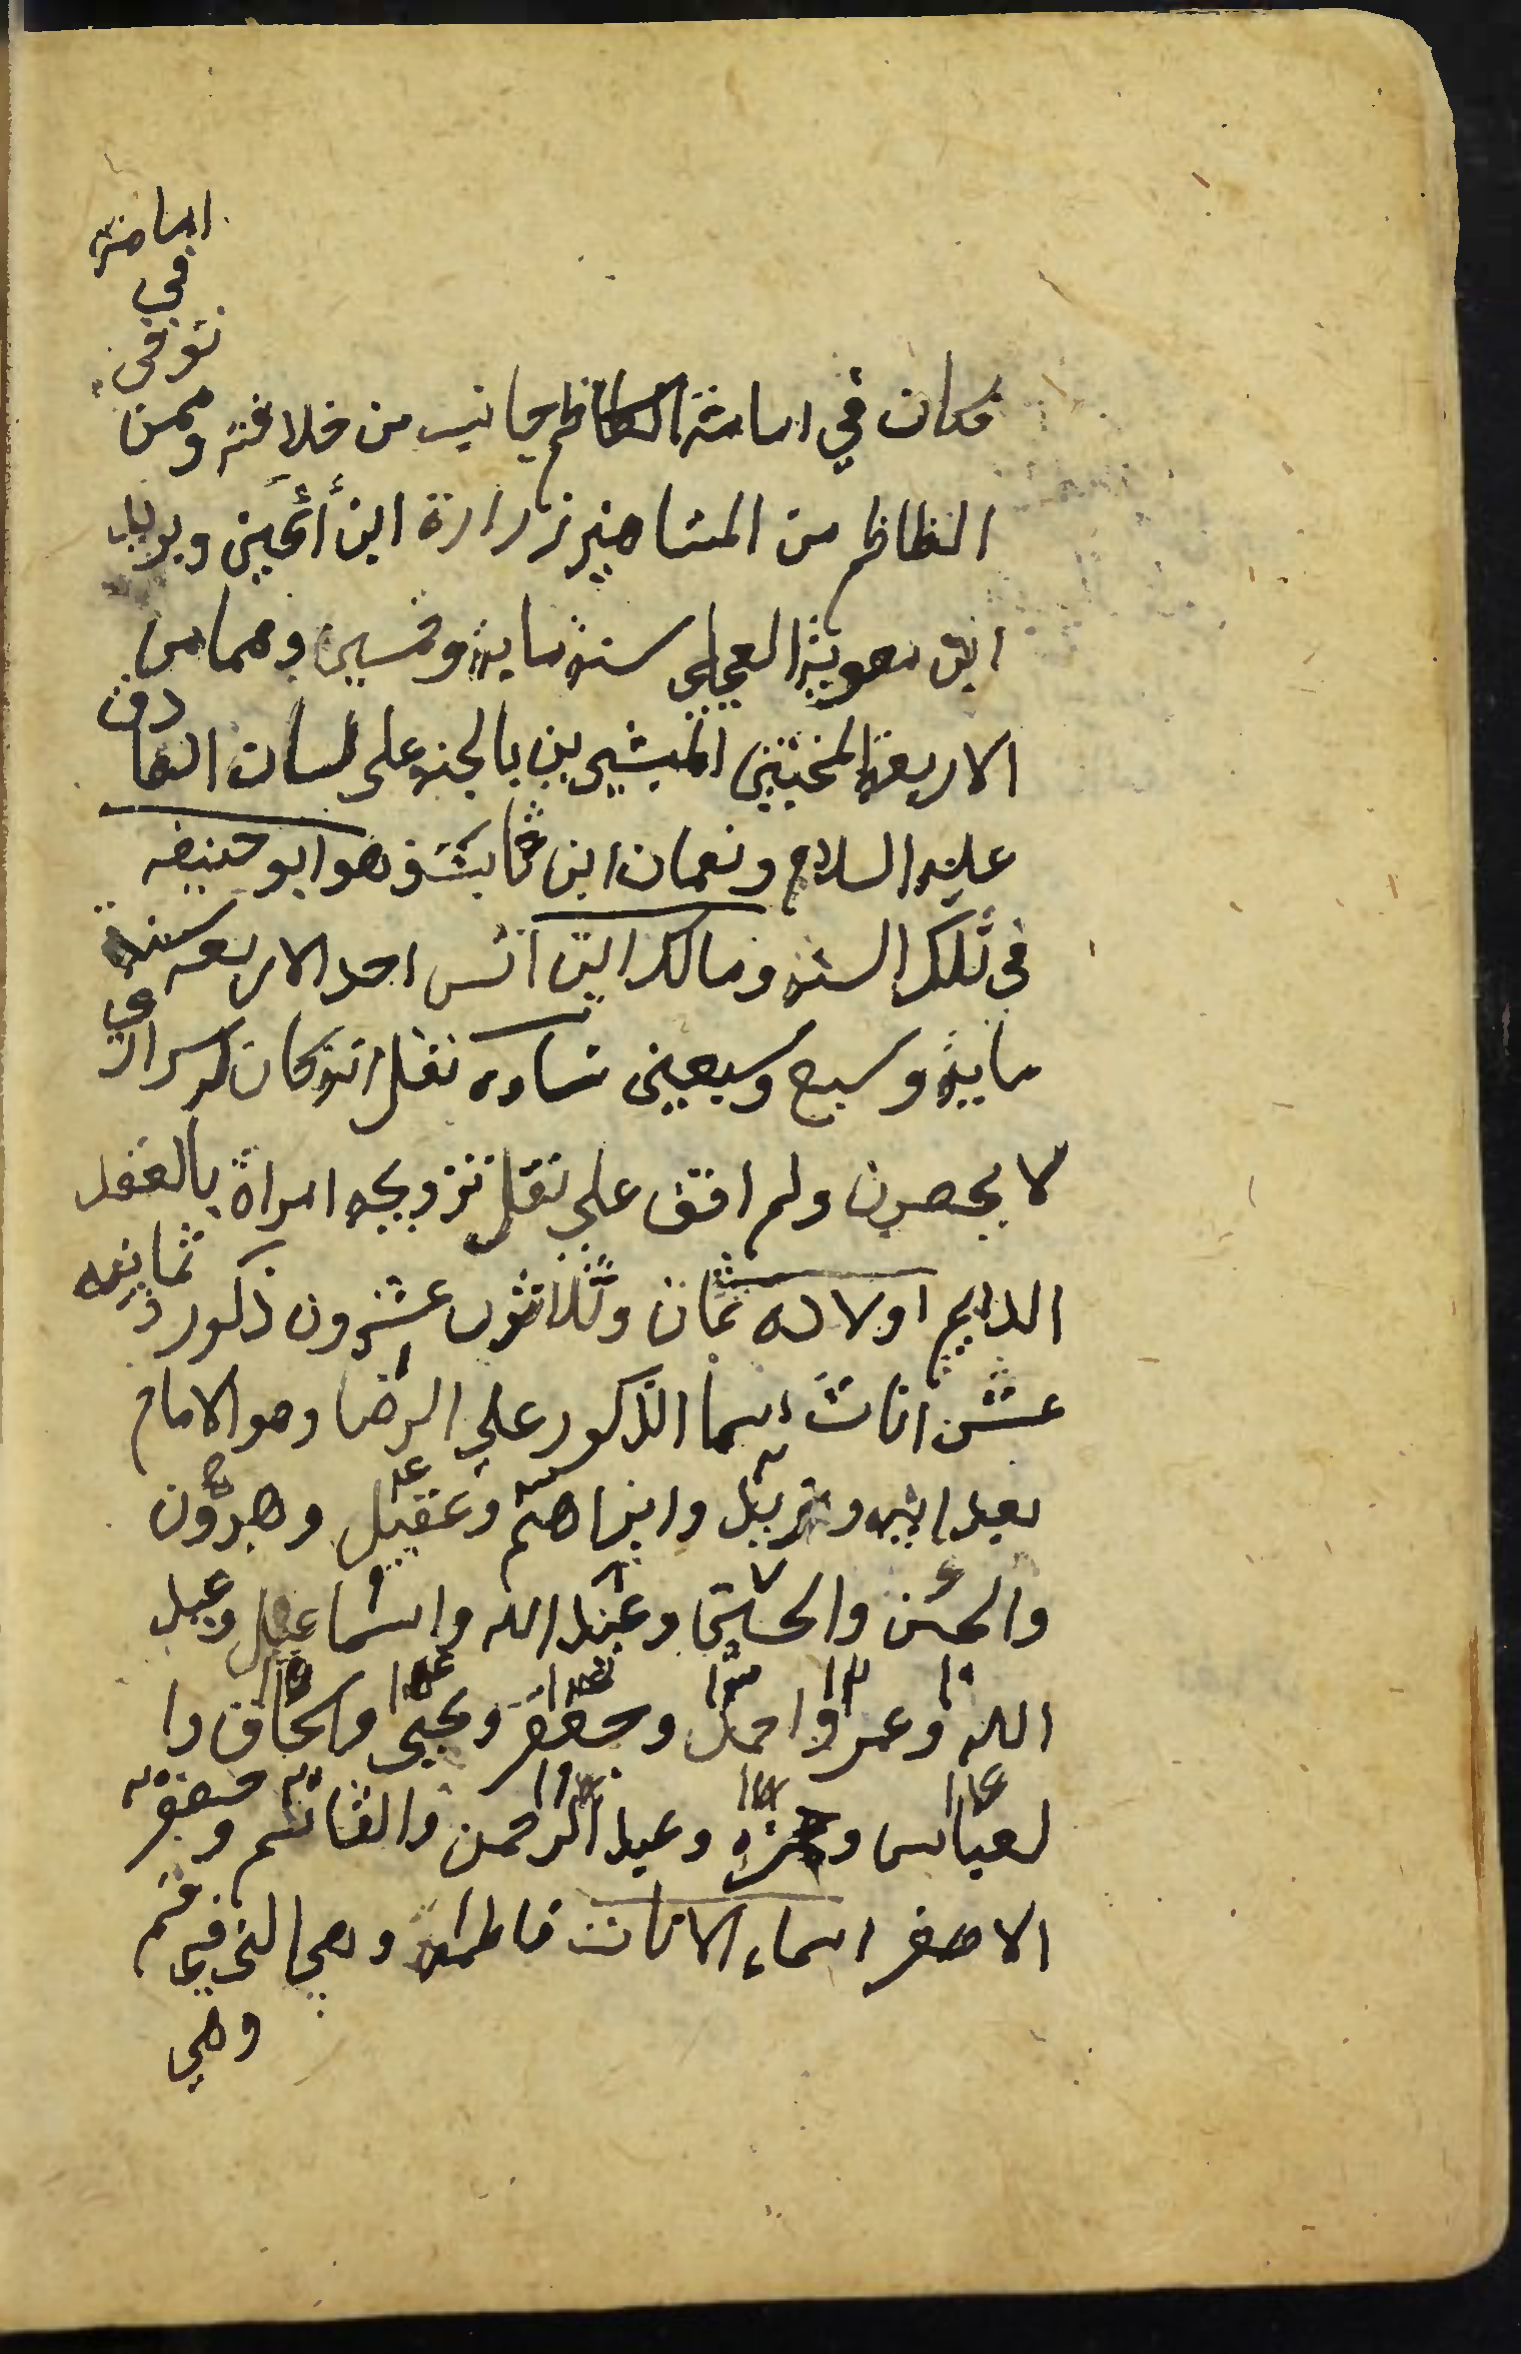 فكان في امامته الكاظم جانب من خلافته وممن
توفي
في
امامة
الظاظم من المشاهير زرارة ابن أعين وبريد
ابن معوية العجلي سنة ماية وخمسين وهما من
الاربعة المخبتين المبشرين بالجنة على لسان الصادق
عليه السلام ونعمان ابن ثابت وهو ابو حنيفه
في تلك السنة ومالك ابن انس احد الاربعه سنة
ماية وسبع وسبعين نساوه نقل انه كان له سراري
لا يحصرن ولم اقف على نقل تزويجه امراة بالعقد
الدايم اولاده ثمان وثلاثون عشرون ذكور وثمانيه
عشر اناث اسما الذكور علي الرضا وهو الامام
بعد ابيه وزيد وابراهيم وعقيل وهرون
والحسن والحسين وعبد الله واسماعيل وعبيد
الله وعمر واحمد وجعفر ويحيى واسحاق وا
لعباس وحمزه وعبد الرحمن والقاسم وجعفر
الاصغر اسماء الاناث فاطمة وهي التي في قم
وهي